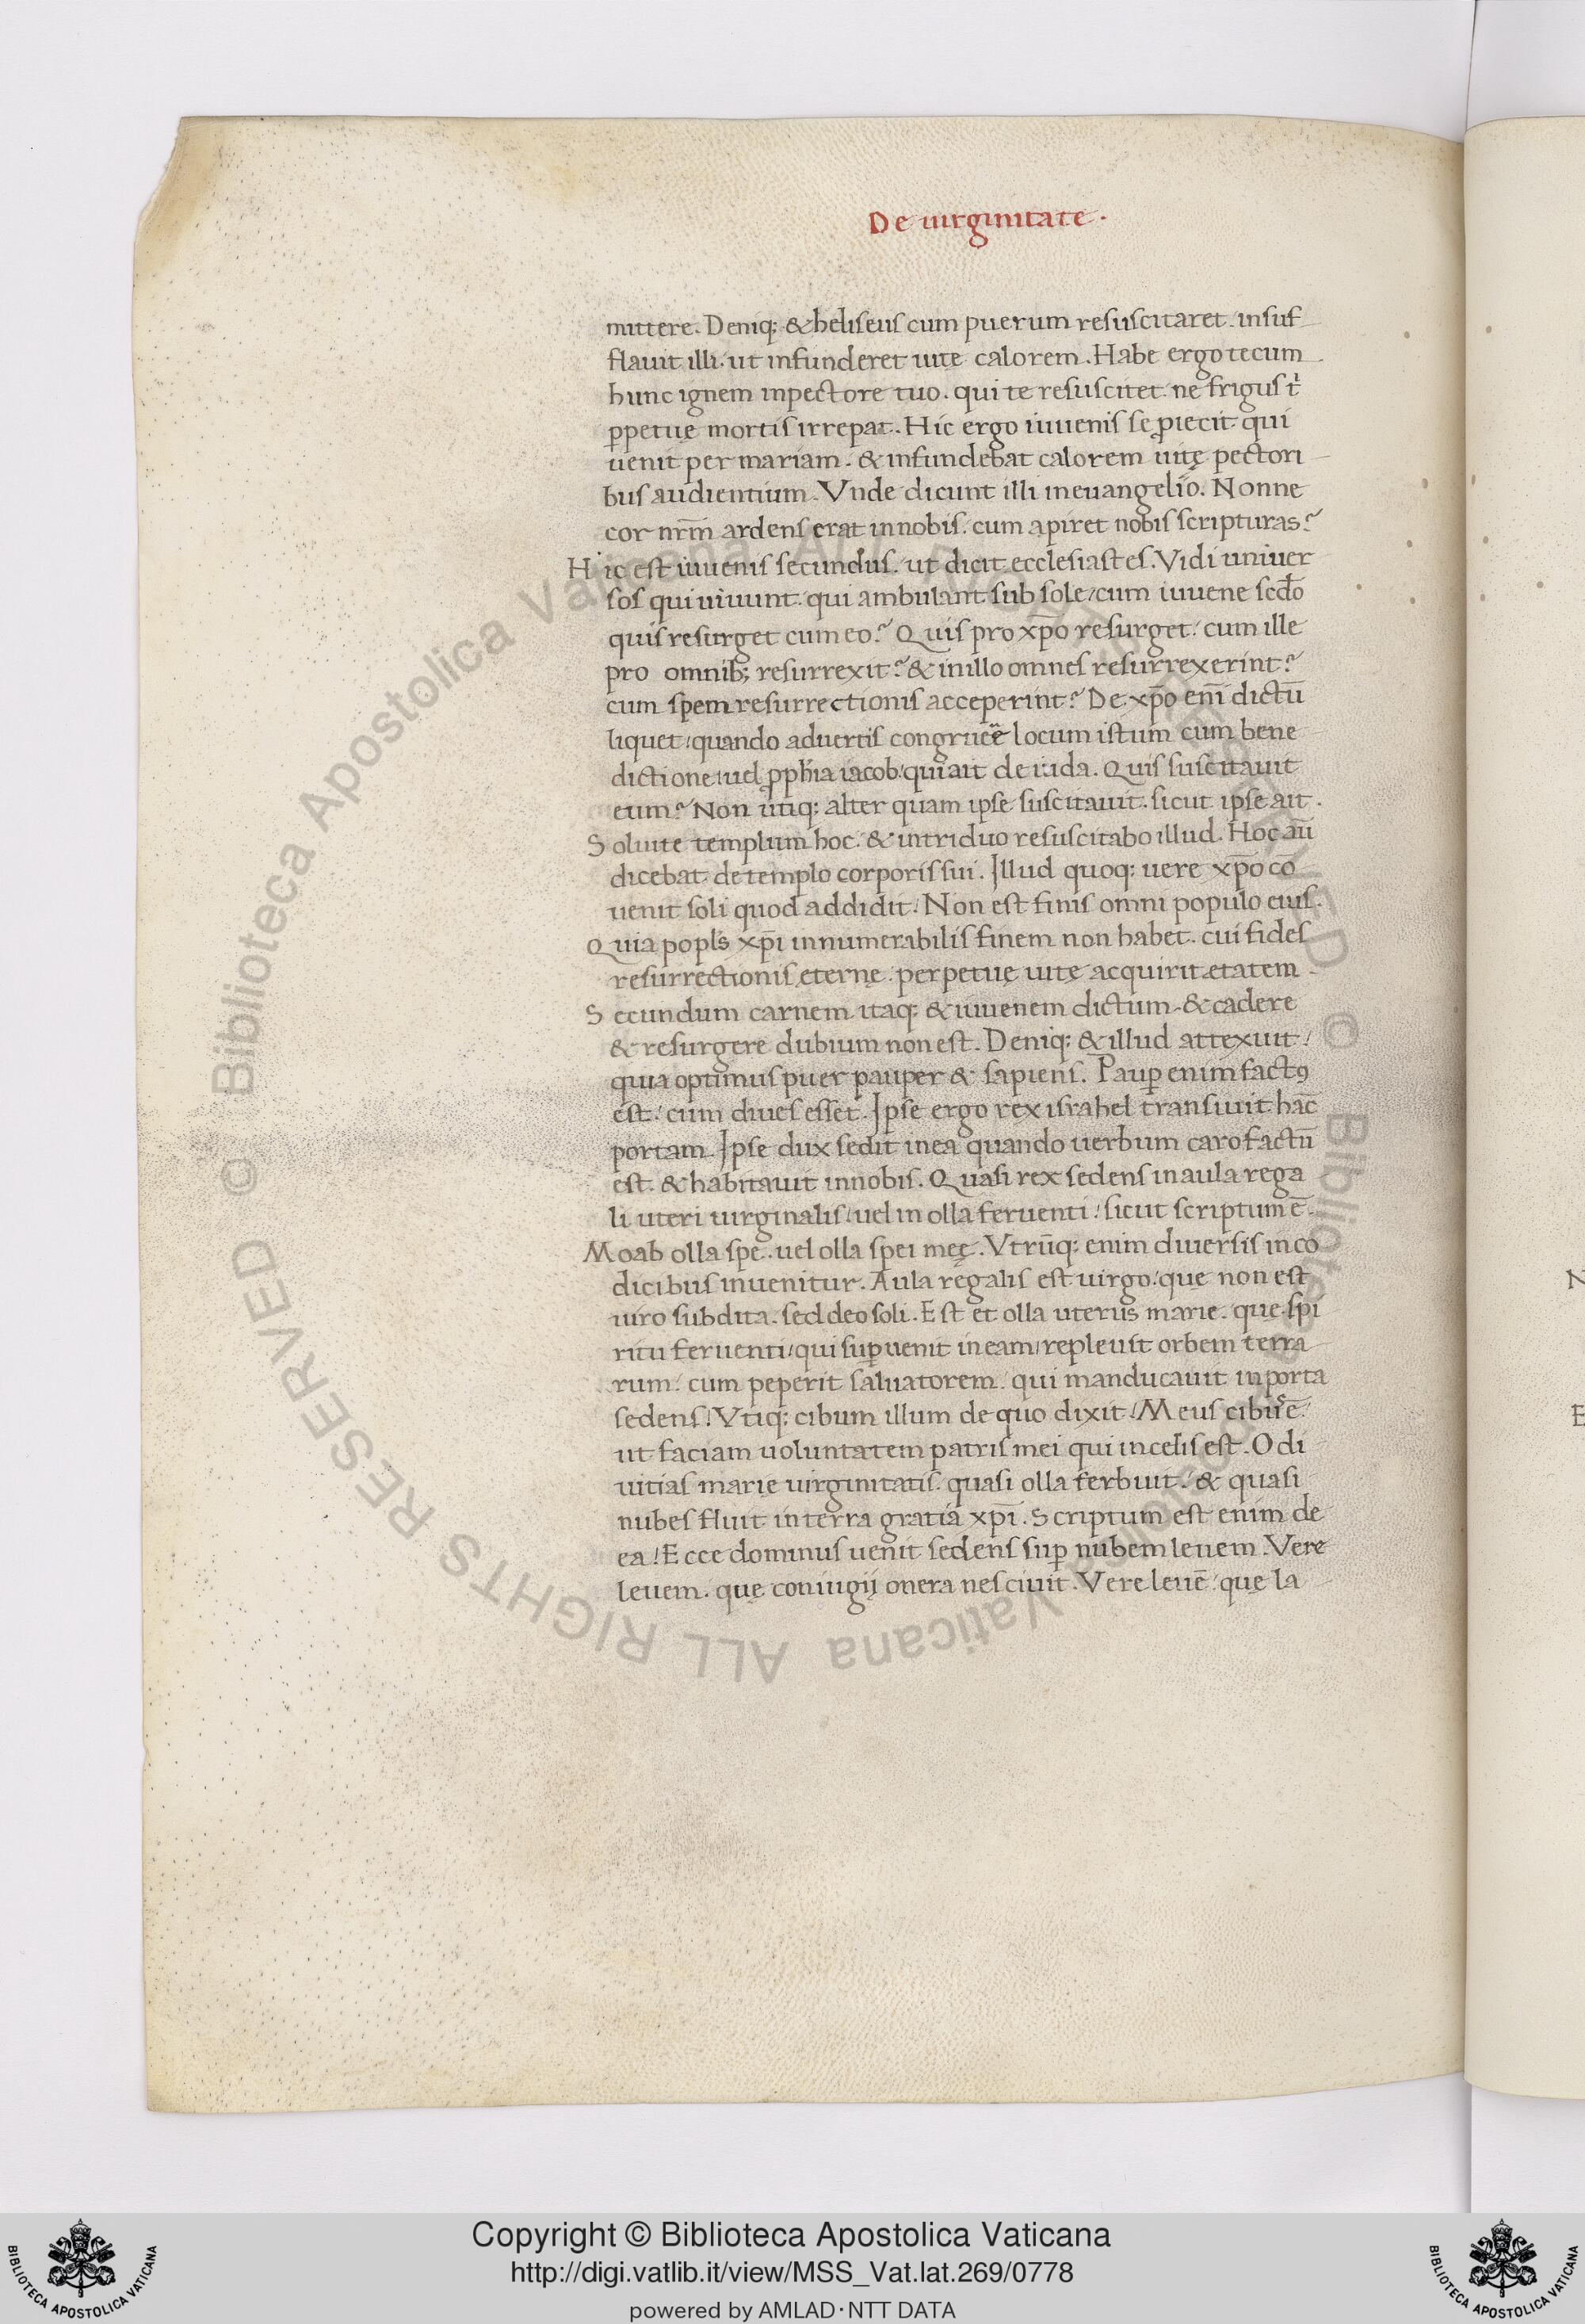 De uirginitate.
mittere. Deniq; & heliseus cum puerum resuscitaret. insuf
flauit illi. ut infunderet uitę calorem. Habe ergo tecum
hunc ignem in pectore tuo. qui te resuscitet. ne frigus t̄
ꝑpetuę mortis irrepat. Hic ergo iuuenis se ꝓiecit qui
uenit per mariam. & infundebat calorem uitę pectori
bus audientium. Vnde dicunt illi in euangelio. Nonne
cor nr̄m ardens erat in nobis. cum apiret nobis scripturas?
Hic est iuuenis secundus. ut dicit ecclesiastes. Vidi uniuer
sos qui uiuunt. qui ambulant sub sole. cum iuuene scd̄o
quis resurget cum eo? Quis pro xp̄o resurget. cum ille
pro omnib; resurrexit? & in illo omnes resurrexerint?
cum spem resurrectionis acceperint? De xp̄o eni̅ dictū
liquet. quando aduertis congruere locum istum cum bene
dictione. uel ꝓph̄ia iacob. qui ait de iuda. Quis suscitauit
eum? Non utiq; alter quam ipse suscitauit. sicut ipse ait.
Soluite templum hoc. & in triduo resuscitabo illud. Hoc aū
dicebat de templo corporis sui. Illud quoq; uere xp̄o cō
uenit soli quod addidit. Non est finis omni populo eius.
Quia popl̄s xp̄i innumerabilis finem non habet. cui fides
resurrectionis ęternę. perpetuę uitę acquirit ętatem.
Secundum carnem itaq; & iuuenem dictum. & cadere
& resurgere dubium non est. Deniq; & illud attexuit.
quia optimus puer pauper & sapiens. Paup̱ enim factꝰ
est. cum diues esset. Ipse ergo rex israhel transiuit hāc
portam. Ipse dux sedit in ea quando uerbum caro factū
est. & habitauit in nobis. Quasi rex sedens in aula rega
li uteri uirginalis. uel in olla feruenti. sicut scriptum ē.
Moab olla spe. uel olla spei meę. Vtrūq; enim diuersis in co
dicibus inuenitur. Aula regalis est uirgo. quę non est
uiro subdita. sed deo soli. Est et olla uterus marię. quę spi
ritu feruenti. qui sup̱uenit in eam. repleuit orbem terra
rum. cum peperit saluatorem. qui manducauit in porta
sedens. Vtiq; cibum illum de quo dixit. Meus cibus ē.
ut faciam uoluntatem patris mei qui in cęlis est. O di
uitias marię uirginitatis. quasi olla ferbuit. & quasi
nubes fluit in terra gratia xp̄i. Scriptum est enim de
ea. Ecce dominus uenit sedens sup̱ nubem leuem. Vere
leuem. quę coniugij onera nesciuit. Vere leuē. quę la
Copyright © Biblioteca Apostolica Vaticana
http://digi.vatlib.it/view/MSS_Vat.lat.269/0778
powered by AMLAD·NTT DATA
BIBLIOTECA APOSTOLICA VATICANA
BIBLIOTECA APOSTOLICA VATICANA
© Biblioteca Apostolica Vaticana ALL RIGHTS RESERVED
© Biblioteca Apostolica Vaticana ALL RIGHTS RESERVED